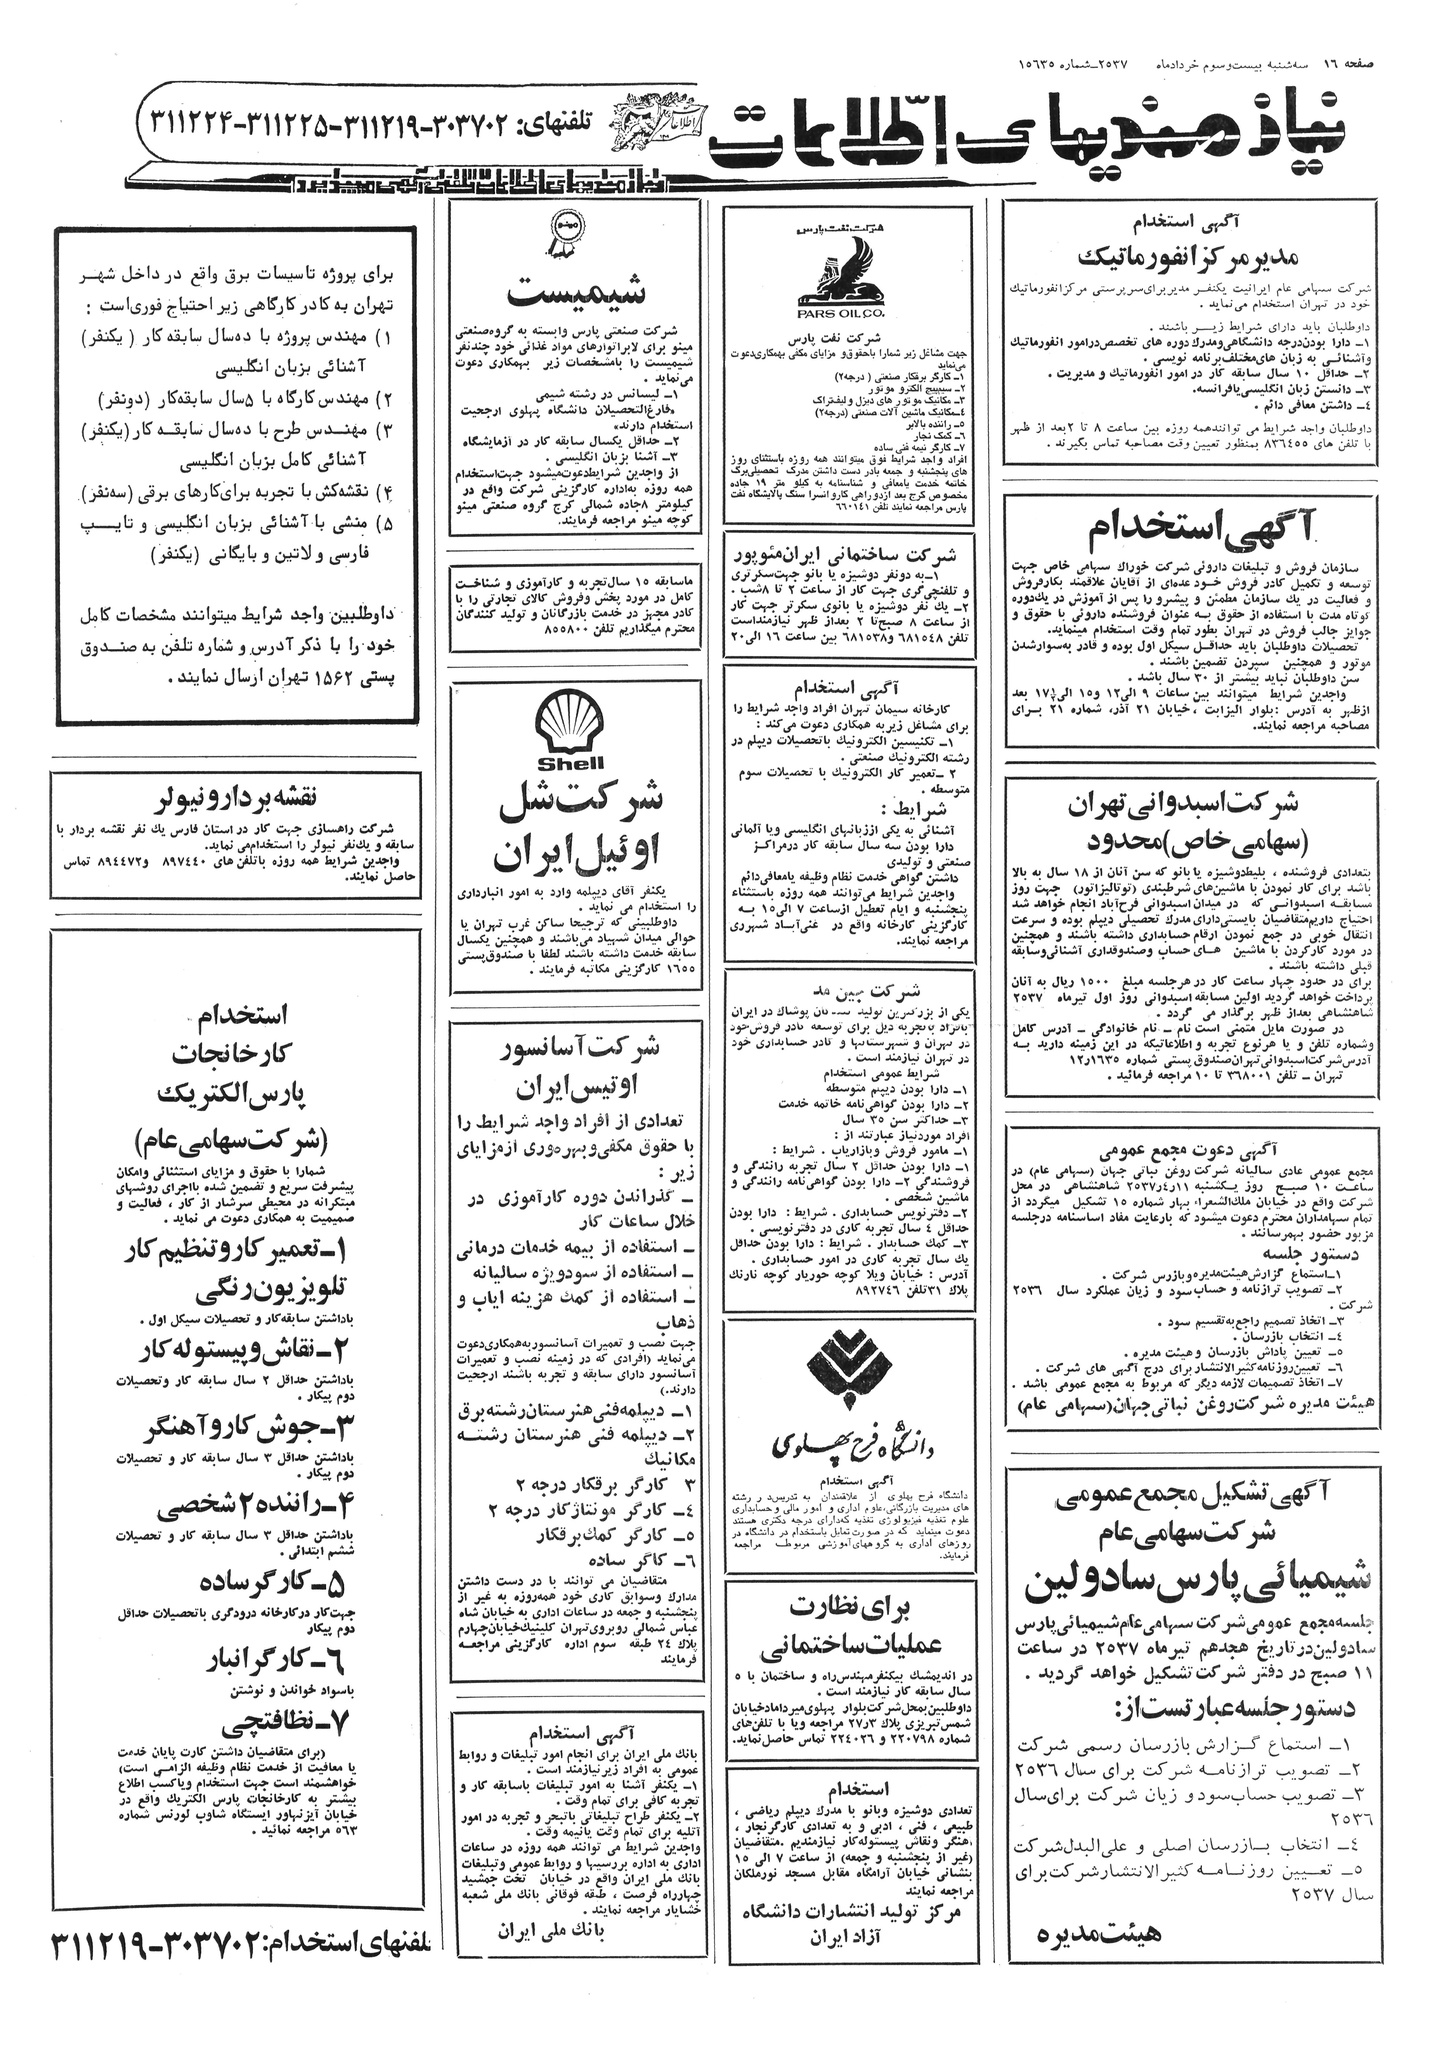 صفحه ۱۶ سه‌شنبه بیست‌وسوم خردادماه ۲۵۳۷ـ شماره ۱۵۶۳۵
نیازمندیهای اطلاعات
تلفنهای: ۳۰۳۷۰۲-۳۱۱۲۱۹-۳۱۱۲۲۵-۳۱۱۲۲۴
نیازمندیهای اطلاعات تلفنی آگهی میپذیرد
آگهی استخدام
مدیر مرکز انفورماتیک
شرکت سهامی عام ایرانیت یکنفر مدیر برای سرپرستی مرکز انفورماتیک
خود در تهران استخدام می‌نماید .
داوطلبان باید دارای شرایط زیر باشند .
۱ـ دارا بودن درجه دانشگاهی و مدرک دوره های تخصص در امور انفورماتیک
و آشنائی به زبان های مختلف برنامه نویسی .
۲ـ حداقل ۱۰ سال سابقه کار در امور انفورماتیک و مدیریت .
۳ـ دانستن زبان انگلیسی یا فرانسه.
۴ـ داشتن معافی دائم .
داوطلبان واجد شرایط می توانند همه روزه بین ساعت ۸ تا ۲ بعد از ظهر
با تلفن های ۸۳۶۴۵۵ بمنظور تعیین وقت مصاحبه تماس بگیرند .
آگهی استخدام
سازمان فروش و تبلیغات داروئی شرکت خوراک سهامی خاص جهت
توسعه و تکمیل کادر فروش خود عده‌ای از آقایان علاقمند بکار فروش
و فعالیت در یک سازمان مطمئن و پیشرو را پس از آموزش در یک دوره
کوتاه مدت با استفاده از حقوق به عنوان فروشنده داروئی با حقوق و
جوایز جالب فروش در تهران بطور تمام وقت استخدام مینماید.
تحصیلات داوطلبان باید حداقل سیکل اول بوده و قادر به سوار شدن
موتور و همچنین سپردن تضمین باشند .
سن داوطلبان نباید بیشتر از ۳۰ سال باشد .
واجدین شرایط میتوانند بین ساعات ۹ الی ۱۲ و ۱۵ الی ۱۷½ بعد
از ظهر به آدرس : بلوار الیزابت ، خیابان ۲۱ آذر، شماره ۲۱ برای
مصاحبه مراجعه نمایند.
شرکت اسبدوانی تهران
(سهامی خاص) محدود
بتعدادی فروشنده ، بلیط دوشیزه یا بانو که سن آنان از ۱۸ سال به بالا
باشد برای کار نمودن با ماشین‌های شرطبندی (توتالیزاتور) جهت روز
مسابقه اسبدوانی که در میدان اسبدوانی فرح‌آباد انجام خواهد شد
احتیاج داریم متقاضیان بایستی دارای مدرک تحصیلی دیپلم بوده و سرعت
انتقال خوبی در جمع نمودن ارقام حسابداری داشته باشند و همچنین
در مورد کارکردن با ماشین های حساب و صندوقداری آشنائی و سابقه
قبلی داشته باشند .
برای در حدود چهار ساعت کار در هر جلسه مبلغ ۱۵۰۰ ریال به آنان
پرداخت خواهد گردید اولین مسابقه اسبدوانی روز اول تیر ماه ۲۵۳۷
شاهنشاهی بعد از ظهر برگذار می گردد .
در صورت مایل متمنی است نام ـ نام خانوادگی ـ آدرس کامل
وشماره تلفن و یا هر نوع تجربه و اطلاعاتیکه در این زمینه دارید به
آدرس شرکت اسبدوانی تهران صندوق پستی شماره ۱۲٫۱۶۳۵
تهران ـ تلفن ۳۶۸۰۰۱ تا ۱۰ مراجعه فرمائید .
آگهی دعوت مجمع عمومی
مجمع عمومی عادی سالیانه شرکت روغن نباتی جهان (سهامی عام) در
ساعت ۱۰ صبح روز یکشنبه ۲۵۳۷٫۴٫۱۱ شاهنشاهی در محل
شرکت واقع در خیابان ملک‌الشعراء بهار شماره ۱۵ تشکیل میگردد از
تمام سهامداران محترم دعوت میشود که بارعایت مفاد اساسنامه درجلسه
مزبور حضور بهمرسانند .
دستور جلسه
۱ـ استماع گزارش هیئت مدیره و بازرس شرکت .
۲ـ تصویب ترازنامه و حساب سود و زیان عملکرد سال ۲۵۳۶
شرکت .
۳ـ اتخاذ تصمیم راجع به تقسیم سود .
۴ـ انتخاب بازرسان .
۵ـ تعیین پاداش بازرسان و هیئت مدیره .
۶ـ تعیین روزنامه کثیرالانتشار برای درج آگهی های شرکت .
۷ـ اتخاذ تصمیمات لازمه دیگر که مربوط به مجمع عمومی باشد .
هیئت مدیره شرکت روغن نباتی جهان (سهامی عام)
آگهی تشکیل مجمع عمومی
شرکت سهامی عام
شیمیائی پارس سادولین
جلسه مجمع عمومی شرکت سهامی عام شیمیائی پارس
سادولین در تاریخ هجدهم تیرماه ۲۵۳۷ در ساعت
۱۱ صبح در دفتر شرکت تشکیل خواهد گردید .
دستور جلسه عبارتست از:
۱ـ استماع گزارش بازرسان رسمی شرکت
۲ـ تصویب ترازنامه شرکت برای سال ۲۵۳۶
۳ـ تصویب حساب سود و زیان شرکت برای سال
۲۵۳۶
۴ـ انتخاب بازرسان اصلی و علی‌البدل شرکت
۵ـ تعیین روزنامه کثیرالانتشار شرکت برای
سال ۲۵۳۷
هیئت مدیره
شرکت نفت پارس
PARS OIL CO.
شرکت نفت پارس
جهت مشاغل زیر شما را باحقوق و مزایای مکفی بهمکاری دعوت
می‌نماید
۱ـ کارگر برقکار صنعتی ( درجه ۲)
۲ـ سیمپیچ الکترو موتور
۳ـ مکانیک موتور های دیزل و لیفتراک
۴ـ مکانیک ماشین آلات صنعتی (درجه ۲)
۵ـ راننده بالابر
۶ـ کمک نجار
۷ـ کارگر نیمه فنی ساده
افراد واجد شرایط فوق میتوانند همه روزه باستثنای روز
های پنجشنبه و جمعه بادر دست داشتن مدرک تحصیلی برگ
خاتمه خدمت یا معافی و شناسنامه به کیلو متر ۱۹ جاده
مخصوص کرج بعد از دو راهی کاروانسرا سنگ پالایشگاه نفت
پارس مراجعه نمایند تلفن ۶۶۰۱۴۱
شرکت ساختمانی ایران مئوپور
۱ـ به دو نفر دوشیزه یا بانو جهت سکرتری
و تلفنچی‌گری جهت کار از ساعت ۲ تا ۸ شب .
۲ـ یک نفر دوشیزه یا بانوی سکرتر جهت کار
از ساعت ۸ صبح تا ۲ بعد از ظهر نیازمند است
تلفن ۶۸۱۵۴۸ و ۶۸۱۵۳۸ بین ساعت ۱۶ الی ۲۰
آگهی استخدام
کارخانه سیمان تهران افراد واجد شرایط را
برای مشاغل زیر به همکاری دعوت می‌کند :
۱ـ تکنیسین الکترونیک باتحصیلات دیپلم در
رشته الکترونیک صنعتی .
۲ ـ تعمیر کار الکترونیک با تحصیلات سوم
متوسطه .
شرایط :
آشنائی به یکی از زبانهای انگلیسی ویا آلمانی
دارا بودن سه سال سابقه کار در مراکز
صنعتی و تولیدی
داشتن گواهی خدمت نظام وظیفه یا معافی دائم
واجدین شرایط می‌توانند همه روزه باستثناء
پنجشنبه و ایام تعطیل از ساعت ۷ الی ۱۵ به
کارگزینی کارخانه واقع در غنی‌آباد شهرری
مراجعه نمایند.
شرکت بین مد
یکی از بزرگترین تولید پوشاک در ایران
بافراد باتجربه ذیل برای توسعه کادر فروش خود
در تهران و شهرستانها و کادر حسابداری خود
در تهران نیازمند است .
شرایط عمومی استخدام
۱ـ دارا بودن دیپلم متوسطه
۲ـ دارا بودن گواهی‌نامه خاتمه خدمت
۳ـ حداکثر سن ۳۵ سال
افراد موردنیاز عبارتند از :
۱ـ مامور فروش و بازاریاب . شرایط :
۱ـ دارا بودن حداقل ۲ سال تجربه رانندگی و
فروشندگی ۲ـ دارا بودن گواهی‌نامه رانندگی و
ماشین شخصی .
۲ـ دفترنویس حسابداری . شرایط : دارا بودن
حداقل ۴ سال تجربه کاری در دفترنویسی .
۳ـ کمک حسابدار . شرایط : دارا بودن حداقل
یک سال تجربه کاری در امور حسابداری .
آدرس : خیابان ویلا کوچه حوریار کوچه نارنک
پلاک ۳۱ تلفن ۸۹۲۷۴۶
دانشگاه فرح پهلوی
آگهی استخدام
دانشگاه فرح پهلوی از علاقمندان به تدریس در رشته
های مدیریت بازرگانی، علوم اداری و امور مالی و حسابداری
علوم تغذیه فیزیولوژی تغذیه که دارای درجه دکتری هستند
دعوت مینماید که در صورت تمایل باستخدام در دانشگاه در
روزهای اداری به گروههای آموزشی مربوطه مراجعه
فرمایند.
برای نظارت
عملیات ساختمانی
در اندیمشک بیکنفر مهندس راه و ساختمان با ۵
سال سابقه کار نیازمند است .
داوطلبین بمحل شرکت بلوار پهلوی میرداماد خیابان
شمس تبریزی پلاک ۲۷٫۳ مراجعه ویا با تلفن‌های
شماره ۲۲۰۷۹۸ و ۲۲۴۰۲۶ تماس حاصل نمایند.
استخدام
تعدادی دوشیزه وبانو با مدرک دیپلم ریاضی ،
طبیعی ، فنی ، ادبی و به تعدادی کارگر نجار ،
آهنگر ونقاش پیستوله کار نیازمندیم . متقاضیان
(غیر از پنجشنبه و جمعه) از ساعت ۷ الی ۱۵
بنشانی خیابان آرامگاه مقابل مسجد نور ملکان
مراجعه نمایند
مرکز تولید انتشارات دانشگاه
آزاد ایران
مینو
شیمیست
شرکت صنعتی پارس وابسته به گروه صنعتی
مینو برای لابراتوارهای مواد غذائی خود چند نفر
شیمیست را بامشخصات زیر بهمکاری دعوت
می‌نماید .
۱ـ لیسانس در رشته شیمی
«فارغ‌التحصیلان دانشگاه پهلوی ارجحیت
استخدام دارند»
۲ـ حداقل یکسال سابقه کار در آزمایشگاه
۳ـ آشنا بزبان انگلیسی .
از واجدین شرایط دعوت میشود جهت استخدام
همه روزه به اداره کارگزینی شرکت واقع در
کیلومتر ۸ جاده شمالی کرج گروه صنعتی مینو
کوچه مینو مراجعه فرمایند.
ماسابقه ۱۵ سال تجربه و کارآموزی و شناخت
کامل در مورد پخش وفروش کالای تجارتی را با
کادر مجهز در خدمت بازرگانان و تولید کنندگان
محترم میگذاریم تلفن ۸۵۵۸۰۰
Shell
شرکت شل
اوئیل ایران
یکنفر آقای دیپلمه وارد به امور انبارداری
را استخدام می نماید .
داوطلبینی که ترجیحا ساکن غرب تهران یا
حوالی میدان شهیاد می‌باشند و همچنین یکسال
سابقه خدمت داشته باشند لطفا با صندوق پستی
۱۶۵۵ کارگزینی مکاتبه فرمایند .
شرکت آسانسور
اوتیس ایران
تعدادی از افراد واجد شرایط را
با حقوق مکفی و بهره‌وری از مزایای
زیر :
ـ گذراندن دوره کارآموزی در
خلال ساعات کار
ـ استفاده از بیمه خدمات درمانی
ـ استفاده از سود ویژه سالیانه
ـ استفاده از کمک هزینه ایاب و
ذهاب
جهت نصب و تعمیرات آسانسور به همکاری دعوت
می‌نماید (افرادی که در زمینه نصب و تعمیرات
آسانسور دارای سابقه و تجربه باشند ارجحیت
دارند.)
۱ـ دیپلمه فنی هنرستان رشته برق
۲ـ دیپلمه فنی هنرستان رشته
مکانیک
۳ کارگر برقکار درجه ۲
۴ـ کارگر مونتاژکار درجه ۲
۵ـ کارگر کمک برقکار
۶ـ کاگر ساده
متقاضیان می توانند با در دست داشتن
مدارک وسوابق کاری خود همه‌روزه به غیر از
پنجشنبه و جمعه در ساعات اداری به خیابان شاه
عباس شمالی روبروی تهران کلینیک خیابان چهارم
پلاک ۲۴ طبقه سوم اداره کارگزینی مراجعه
فرمایند
آگهی استخدام
بانک ملی ایران برای انجام امور تبلیغات و روابط
عمومی به افراد زیر نیازمند است .
۱ـ یکنفر آشنا به امور تبلیغات باسابقه کار و
تجربه کافی برای تمام وقت .
۲ـ یکنفر طراح تبلیغاتی باتبحر و تجربه در امور
آتلیه برای تمام وقت یانیمه وقت .
واجدین شرایط می توانند همه روزه در ساعات
اداری به اداره بررسیها و روابط عمومی وتبلیغات
بانک ملی ایران واقع در خیابان تخت جمشید
چهارراه فرصت ، طبقه فوقانی بانک ملی شعبه
خشایار مراجعه نمایند .
بانک ملی ایران
برای پروژه تاسیسات برق واقع در داخل شهر
تهران به کادر کارگاهی زیر احتیاج فوری‌است :
۱) مهندس پروژه با ده‌سال سابقه کار ( یکنفر)
آشنائی بزبان انگلیسی
۲) مهندس کارگاه با ۵ سال سابقه کار (دونفر)
۳) مهندس طرح با ده‌سال سابقه کار (یکنفر)
آشنائی کامل بزبان انگلیسی
۴) نقشه‌کش با تجربه برای کارهای برقی (سه‌نفر)
۵) منشی با آشنائی بزبان انگلیسی و تایپ
فارسی و لاتین و بایگانی (یکنفر)
داوطلبین واجد شرایط میتوانند مشخصات کامل
خود را با ذکر آدرس و شماره تلفن به صندوق
پستی ۱۵۶۲ تهران ارسال نمایند .
نقشه بردار و نیولر
شرکت راهسازی جهت کار در استان فارس یک نفر نقشه بردار با
سابقه و یک نفر نیولر را استخدام می نماید.
واجدین شرایط همه روزه باتلفن های ۸۹۷۴۴۰ و ۸۹۴۴۷۳ تماس
حاصل نمایند.
استخدام
کارخانجات
پارس الکتریک
(شرکت سهامی عام)
شمارا با حقوق و مزایای استثنائی وامکان
پیشرفت سریع و تضمین شده بااجرای روشهای
مبتکرانه در محیطی سرشار از کار ، فعالیت و
صمیمیت به همکاری دعوت می نماید .
۱ـ تعمیر کار و تنظیم کار
تلویزیون رنگی
باداشتن سابقه کار و تحصیلات سیکل اول .
۲ـ نقاش و پیستوله کار
باداشتن حداقل ۲ سال سابقه کار وتحصیلات
دوم پیکار .
۳ـ جوش کار و آهنگر
باداشتن حداقل ۳ سال سابقه کار و تحصیلات
دوم پیکار .
۴ـ راننده ۲ شخصی
باداشتن حداقل ۳ سال سابقه کار و تحصیلات
ششم ابتدائی .
۵ـ کارگر ساده
جهت کار در کارخانه درودگری باتحصیلات حداقل
دوم پیکار
۶ـ کارگر انبار
باسواد خواندن و نوشتن
۷ـ نظافتچی
(برای متقاضیان داشتن کارت پایان خدمت
یا معافیت از خدمت نظام وظیفه الزامی است)
خواهشمند است جهت استخدام ویاکسب اطلاع
بیشتر به کارخانجات پارس الکتریک واقع در
خیابان آیزنهاور ایستگاه شاوب لورنس شماره
۵۶۳ مراجعه نمائید .
تلفنهای استخدام: ۳۰۳۷۰۲-۳۱۱۲۱۹